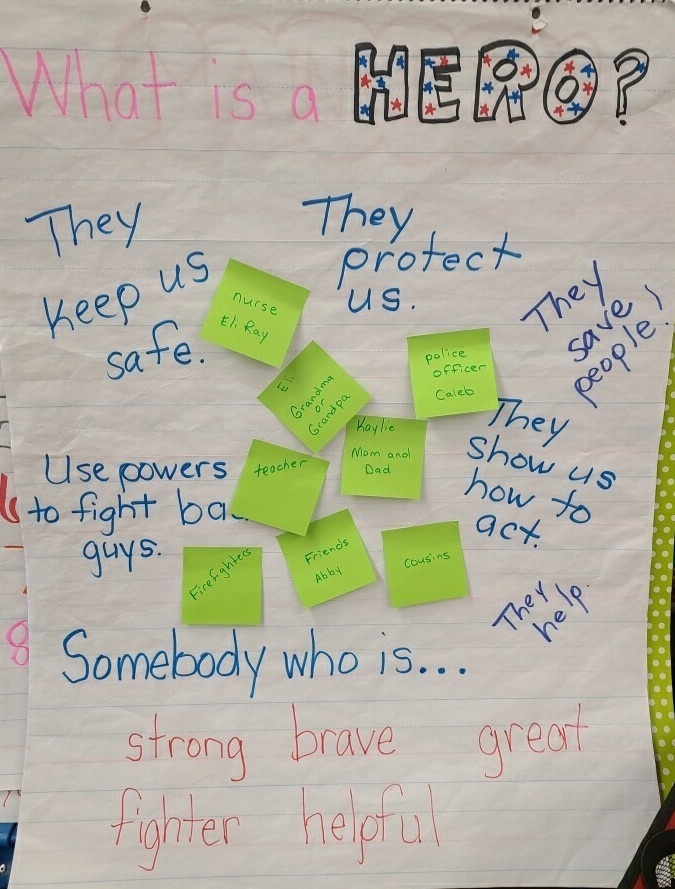 What is a HERO?
They
keep us
safe.
They
protect
us.
They
save
people!
nurse
Eli Ray
Eli
Grandma
or
Grandpa
police
officer
Caleb
Kaylie
Mom and
Dad
They
show us
how to
act.
Use powers
to fight ba
guys.
teacher
Firefighters
Friends
Abby
cousins
They
help.
Somebody who is...
strong brave great
fighter helpful
8